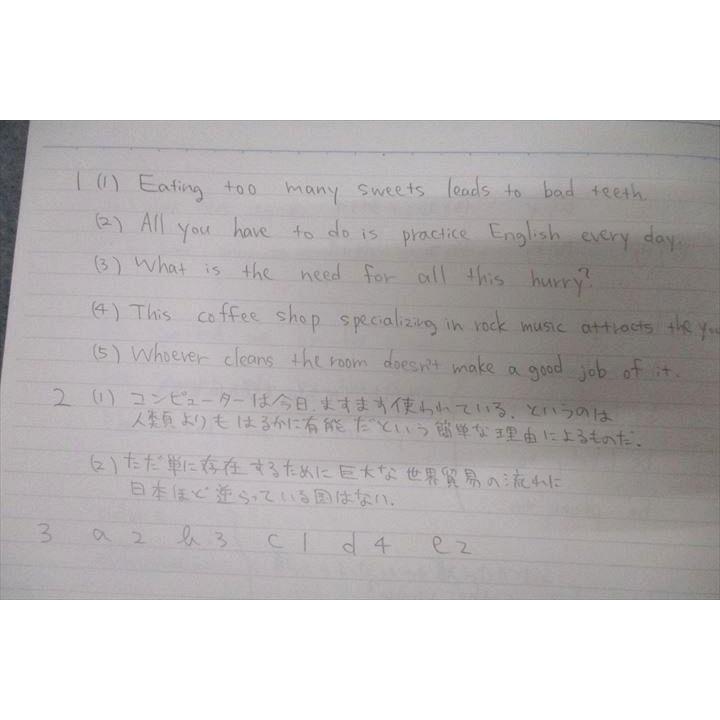 1 (1) Eating too many sweets leads to bad teeth.
(2) All you have to do is practice English every day.
(3) What is the need for all this hurry?
(4) This coffee shop specializing in rock music attracts the
(5) Whoever cleans the room doesn't make a good job of it.
2 (1) コンピューターは今日、ますます使われている、というのは
人類よりもはるかに有能だという簡単な理由によるものだ.
(2) ただ単に存在するために巨大な世界貿易の流れに
日本ほど逆らっている国はない.
3 a 2 b 3 c 1 d 4 e 2